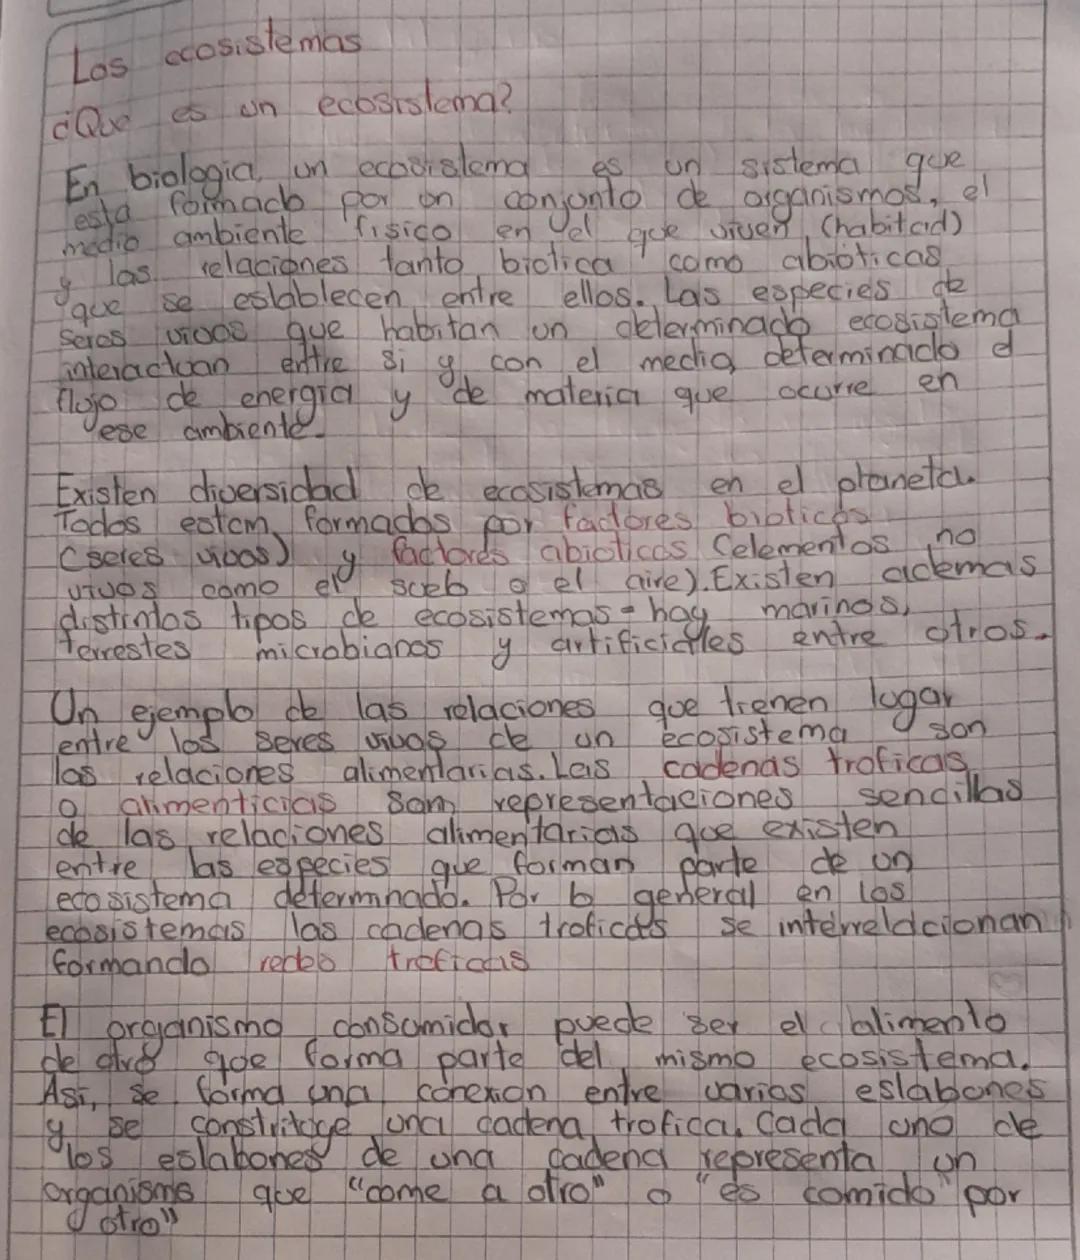 Los ecosistemas
¿Que es un ecosistema?
En biologia, un ecosistema es un sistema que
esta formado por un conjunto de organismos, el
medio ambiente fisico en el que viven (habitad)
y las relaciones tanto biotica como abióticas
que se establecen entre ellos. Las especies de
seres vivos que habitan un determinado ecosistema
interactuan entre si y con el medio, determinado el
flujo de energia y de materia que ocurre en
ese ambiente.
Existen diversidad de ecosistemas en el planeta.
Todos estan formados por factores bioticos
(seres vivos) y factores abioticos (elementos no
vivos como el suelo o el aire). Existen ademas
distintos tipos de ecosistemas - hay marinos,
terrestes microbianos y artificiales entre otros.
Un ejemplo de las relaciones que tienen lugar
entre los seres vivos de un ecosistema son
las relaciones alimentarias. Las cadenas troficas
o alimenticias som representaciones sencillas
de las relaciones alimentarias que existen
entre las especies que forman parte de un
ecosistema determinado. Por lo general en los
ecosistemas las cadenas troficas se interrelacionan
formando redes troficas
El organismo consumidor puede ser el alimento
de otro que forma parte del mismo ecosistema.
Asi, se forma una conexion entre varios eslabones
y se constituye una cadena trofica. Cada uno de
los eslabones de una cadena representa un
organismo que "come a otro" o "es comido" por
otro"